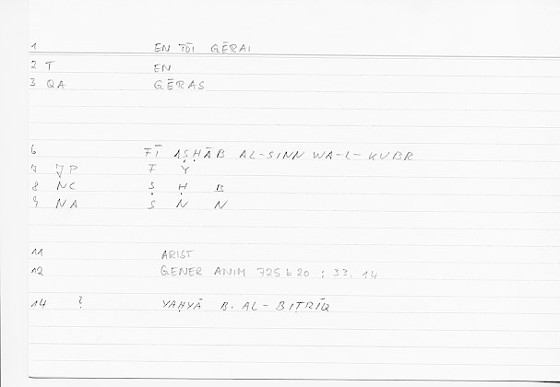 1 EN TŌI GĒRAI
2 T EN
3 QA GĒRAS
6 FĪ AṢḤĀB AL-SINN WA-L-KUBR
7 P F Y
8 NC Ṣ Ḥ B
9 NA S N N
11 ARIST
12 GENER ANIM 725b20 ; 33.14
14 ? YAḤYĀ B. AL-BIṬRĪQ